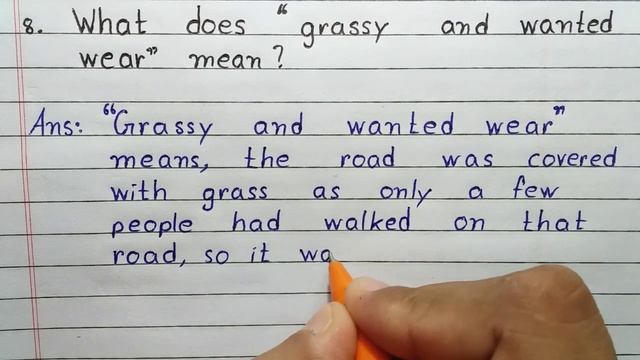 8. What does "grassy and wanted
wear" mean?
Ans: "Grassy and wanted wear"
means, the road was covered
with grass as only a few
people had walked on that
road, so it wa